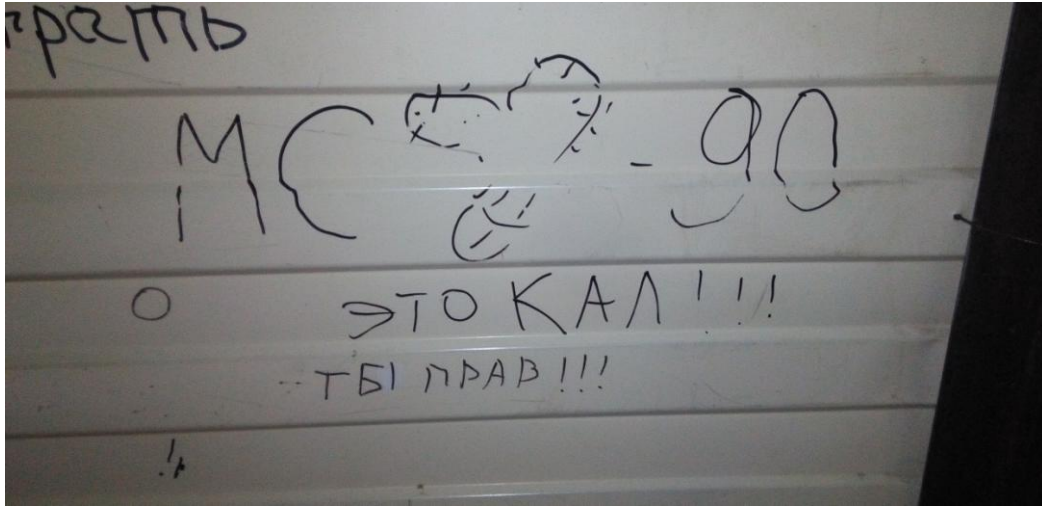 МС -90
ЭТО КАЛ!!!
ТЫ ПРАВ!!!